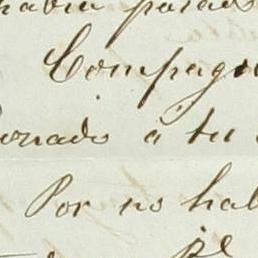 habia parado
Compagn
onado á tu
Por no hal